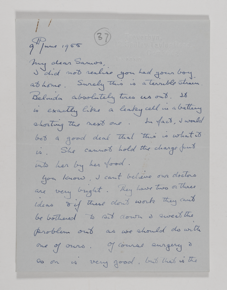 37
9th June 1955
My dear Eunice,
I did not realise you had your boy
at home. Surely this is a terrible strain
Belinda absolutely tires me out. It
is exactly like a leaky cell in a battery
shorting the rest one. In fact, I would
bet a good deal that this is what it
is. She cannot hold the charge put
into her by her food.
You know, I can't believe our doctors
are very bright. They have two or three
ideas & if these don't work they can't
be bothered to sit down & sweat the
problem out as we should do with
one of ours. Of course surgery &
so on is very good, but that is the